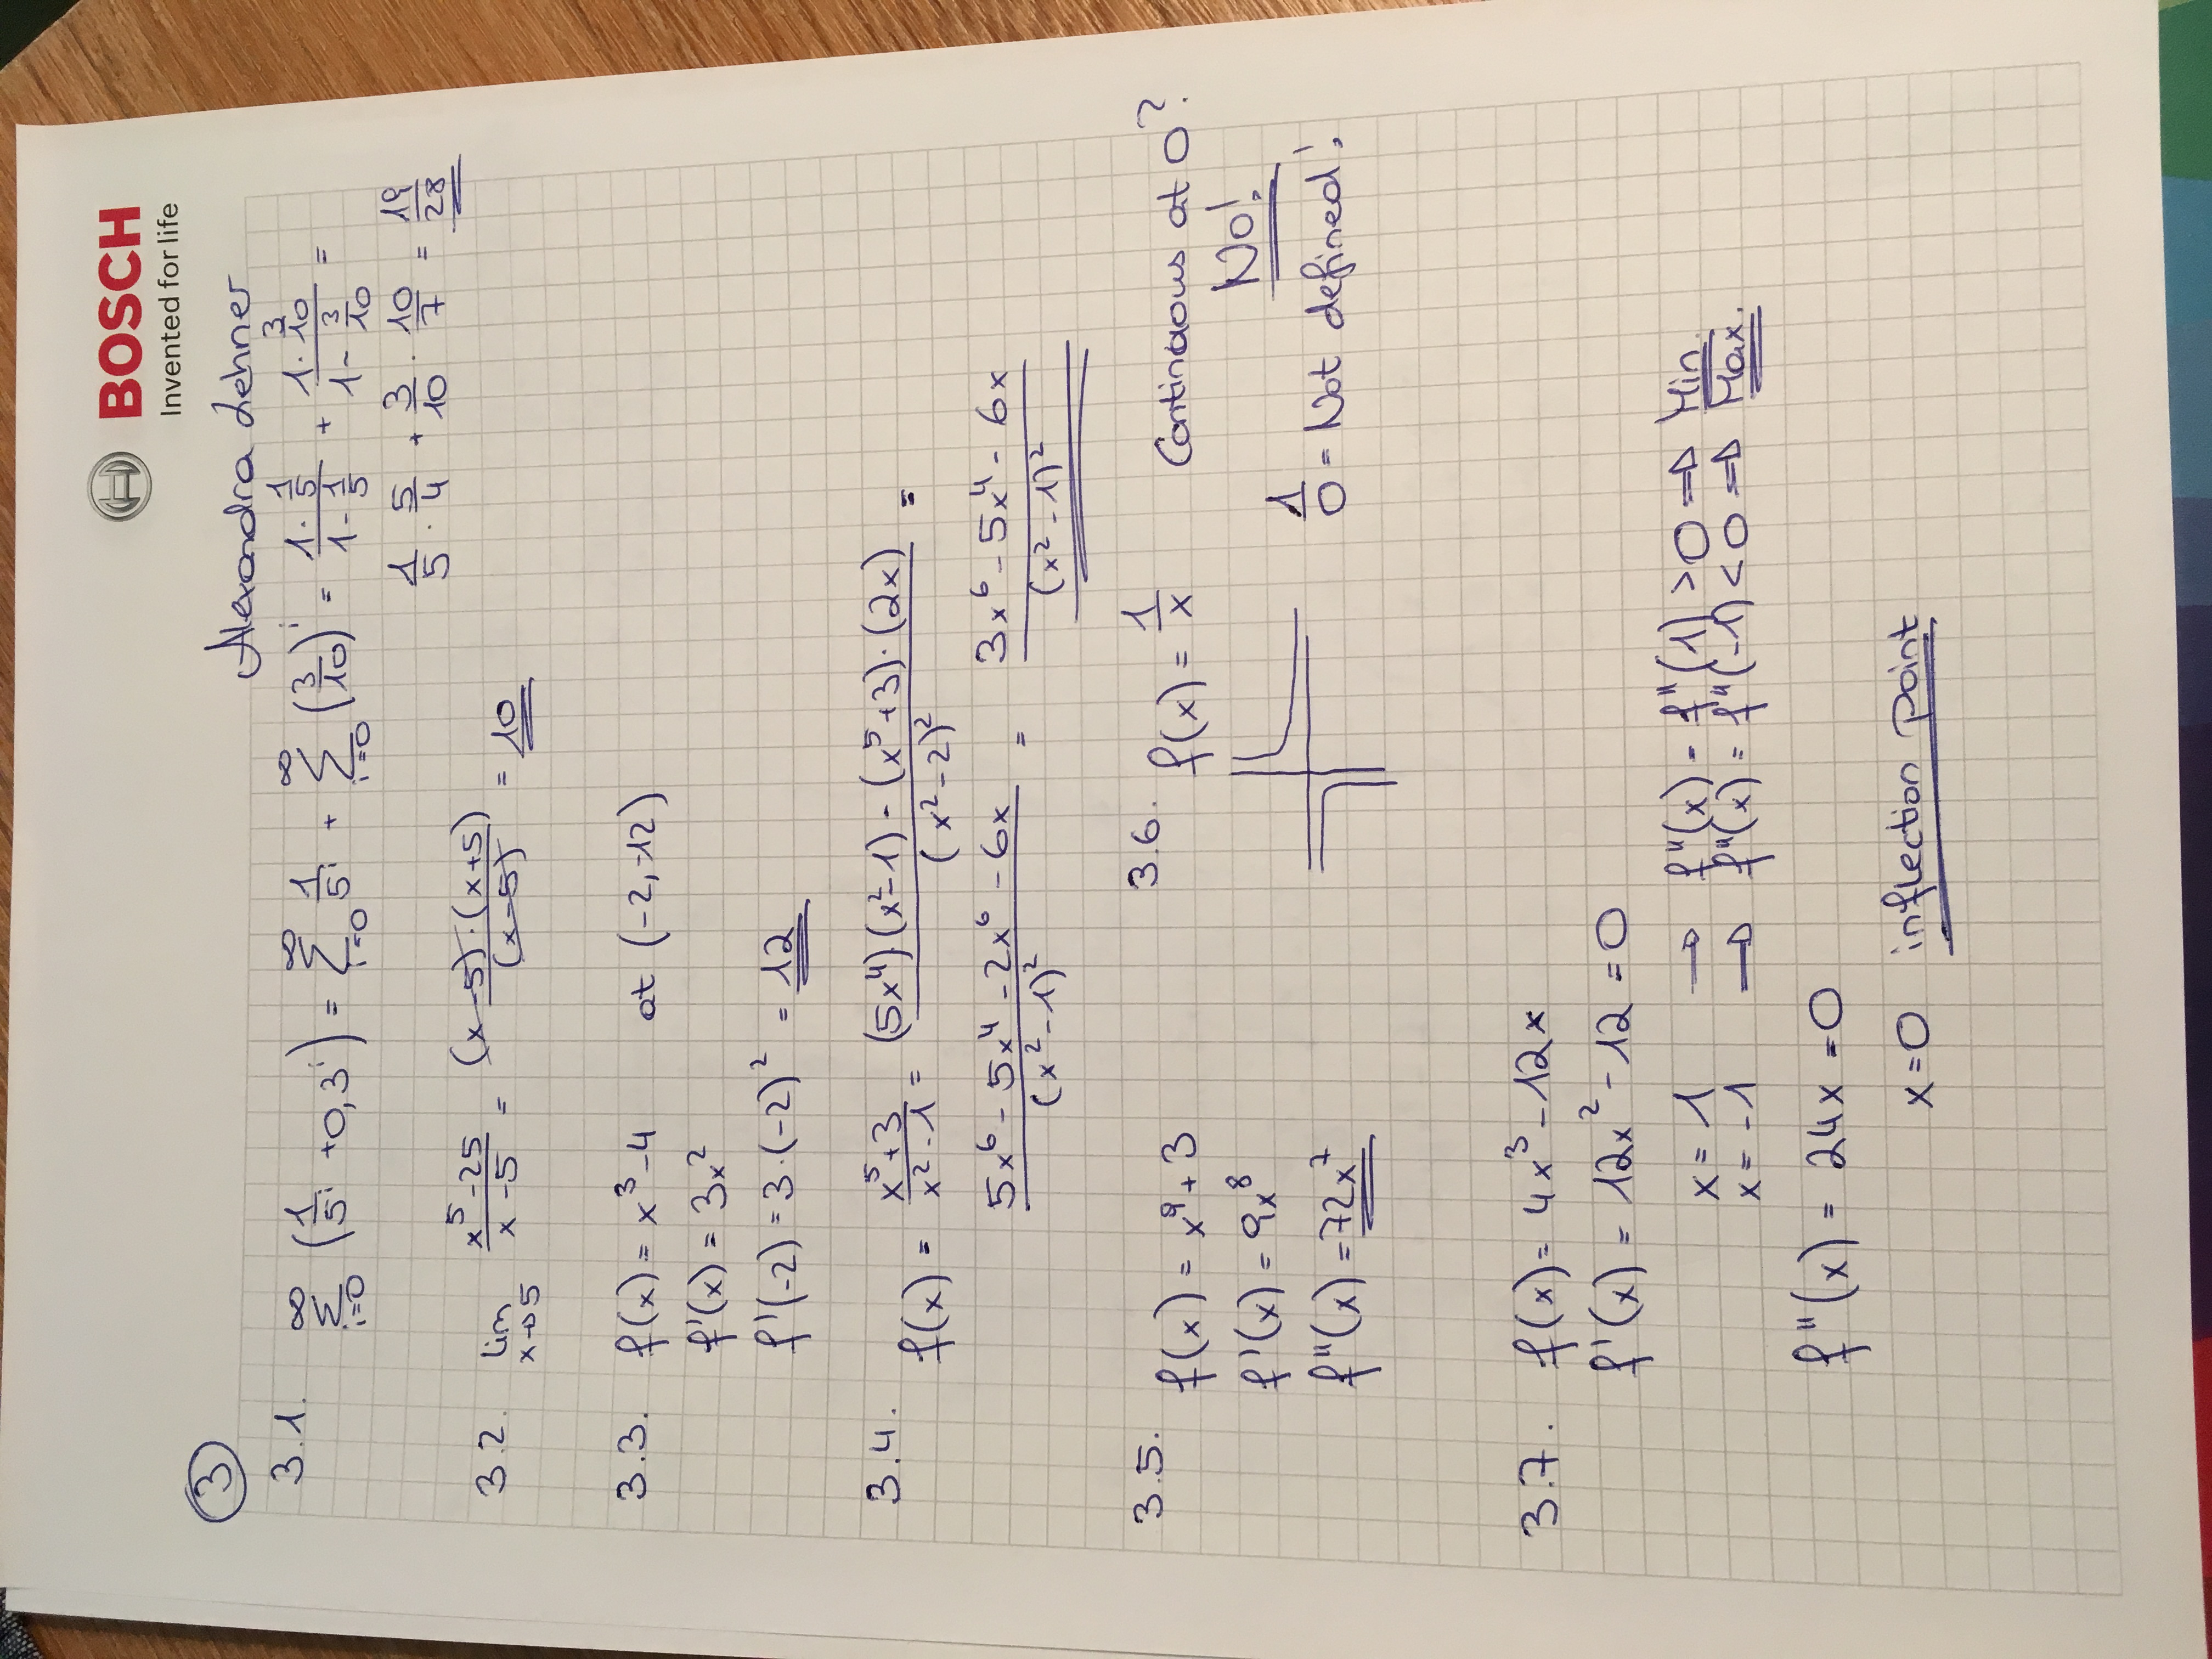 BOSCH
Invented for life
3
Alexandra Lehner
3.1. ∑_{i=0}^{∞} (1/5^i + 0,3^i) = ∑_{i=0}^{∞} 1/5^i + ∑_{i=0}^{∞} (3/10)^i = (1·1/5)/(1-1/5) + (1·3/10)/(1-3/10) =
1/5 · 5/4 + 3/10 · 10/7 = 19/28
3.2. lim_{x→5} (x^5-25)/(x-5) = ((x-5)·(x+5))/(x-5) = 10
3.3. f(x) = x^3-4 at (-2,-12)
f'(x) = 3x^2
f'(-2) = 3·(-2)^2 = 12
3.4. f(x) = (x^5+3)/(x^2-1) = ((5x^4)·(x^2-1) - (x^5+3)·(2x))/(x^2-2)^2 =
(5x^6 - 5x^4 - 2x^6 - 6x)/(x^2-1)^2 = (3x^6 - 5x^4 - 6x)/(x^2-1)^2
3.5. f(x) = x^9+3
f'(x) = 9x^8
f''(x) = 72x^7
3.6. f(x) = 1/x Continuous at 0?
No!
1/0 = Not defined!
3.7. f(x) = 4x^3-12x
f'(x) = 12x^2-12 = 0
x = 1 → f''(x) = f''(1) > 0 ⇒ Min.
x = -1 → f''(x) = f''(-1) < 0 ⇒ Max.
f''(x) = 24x = 0
x = 0 inflection point